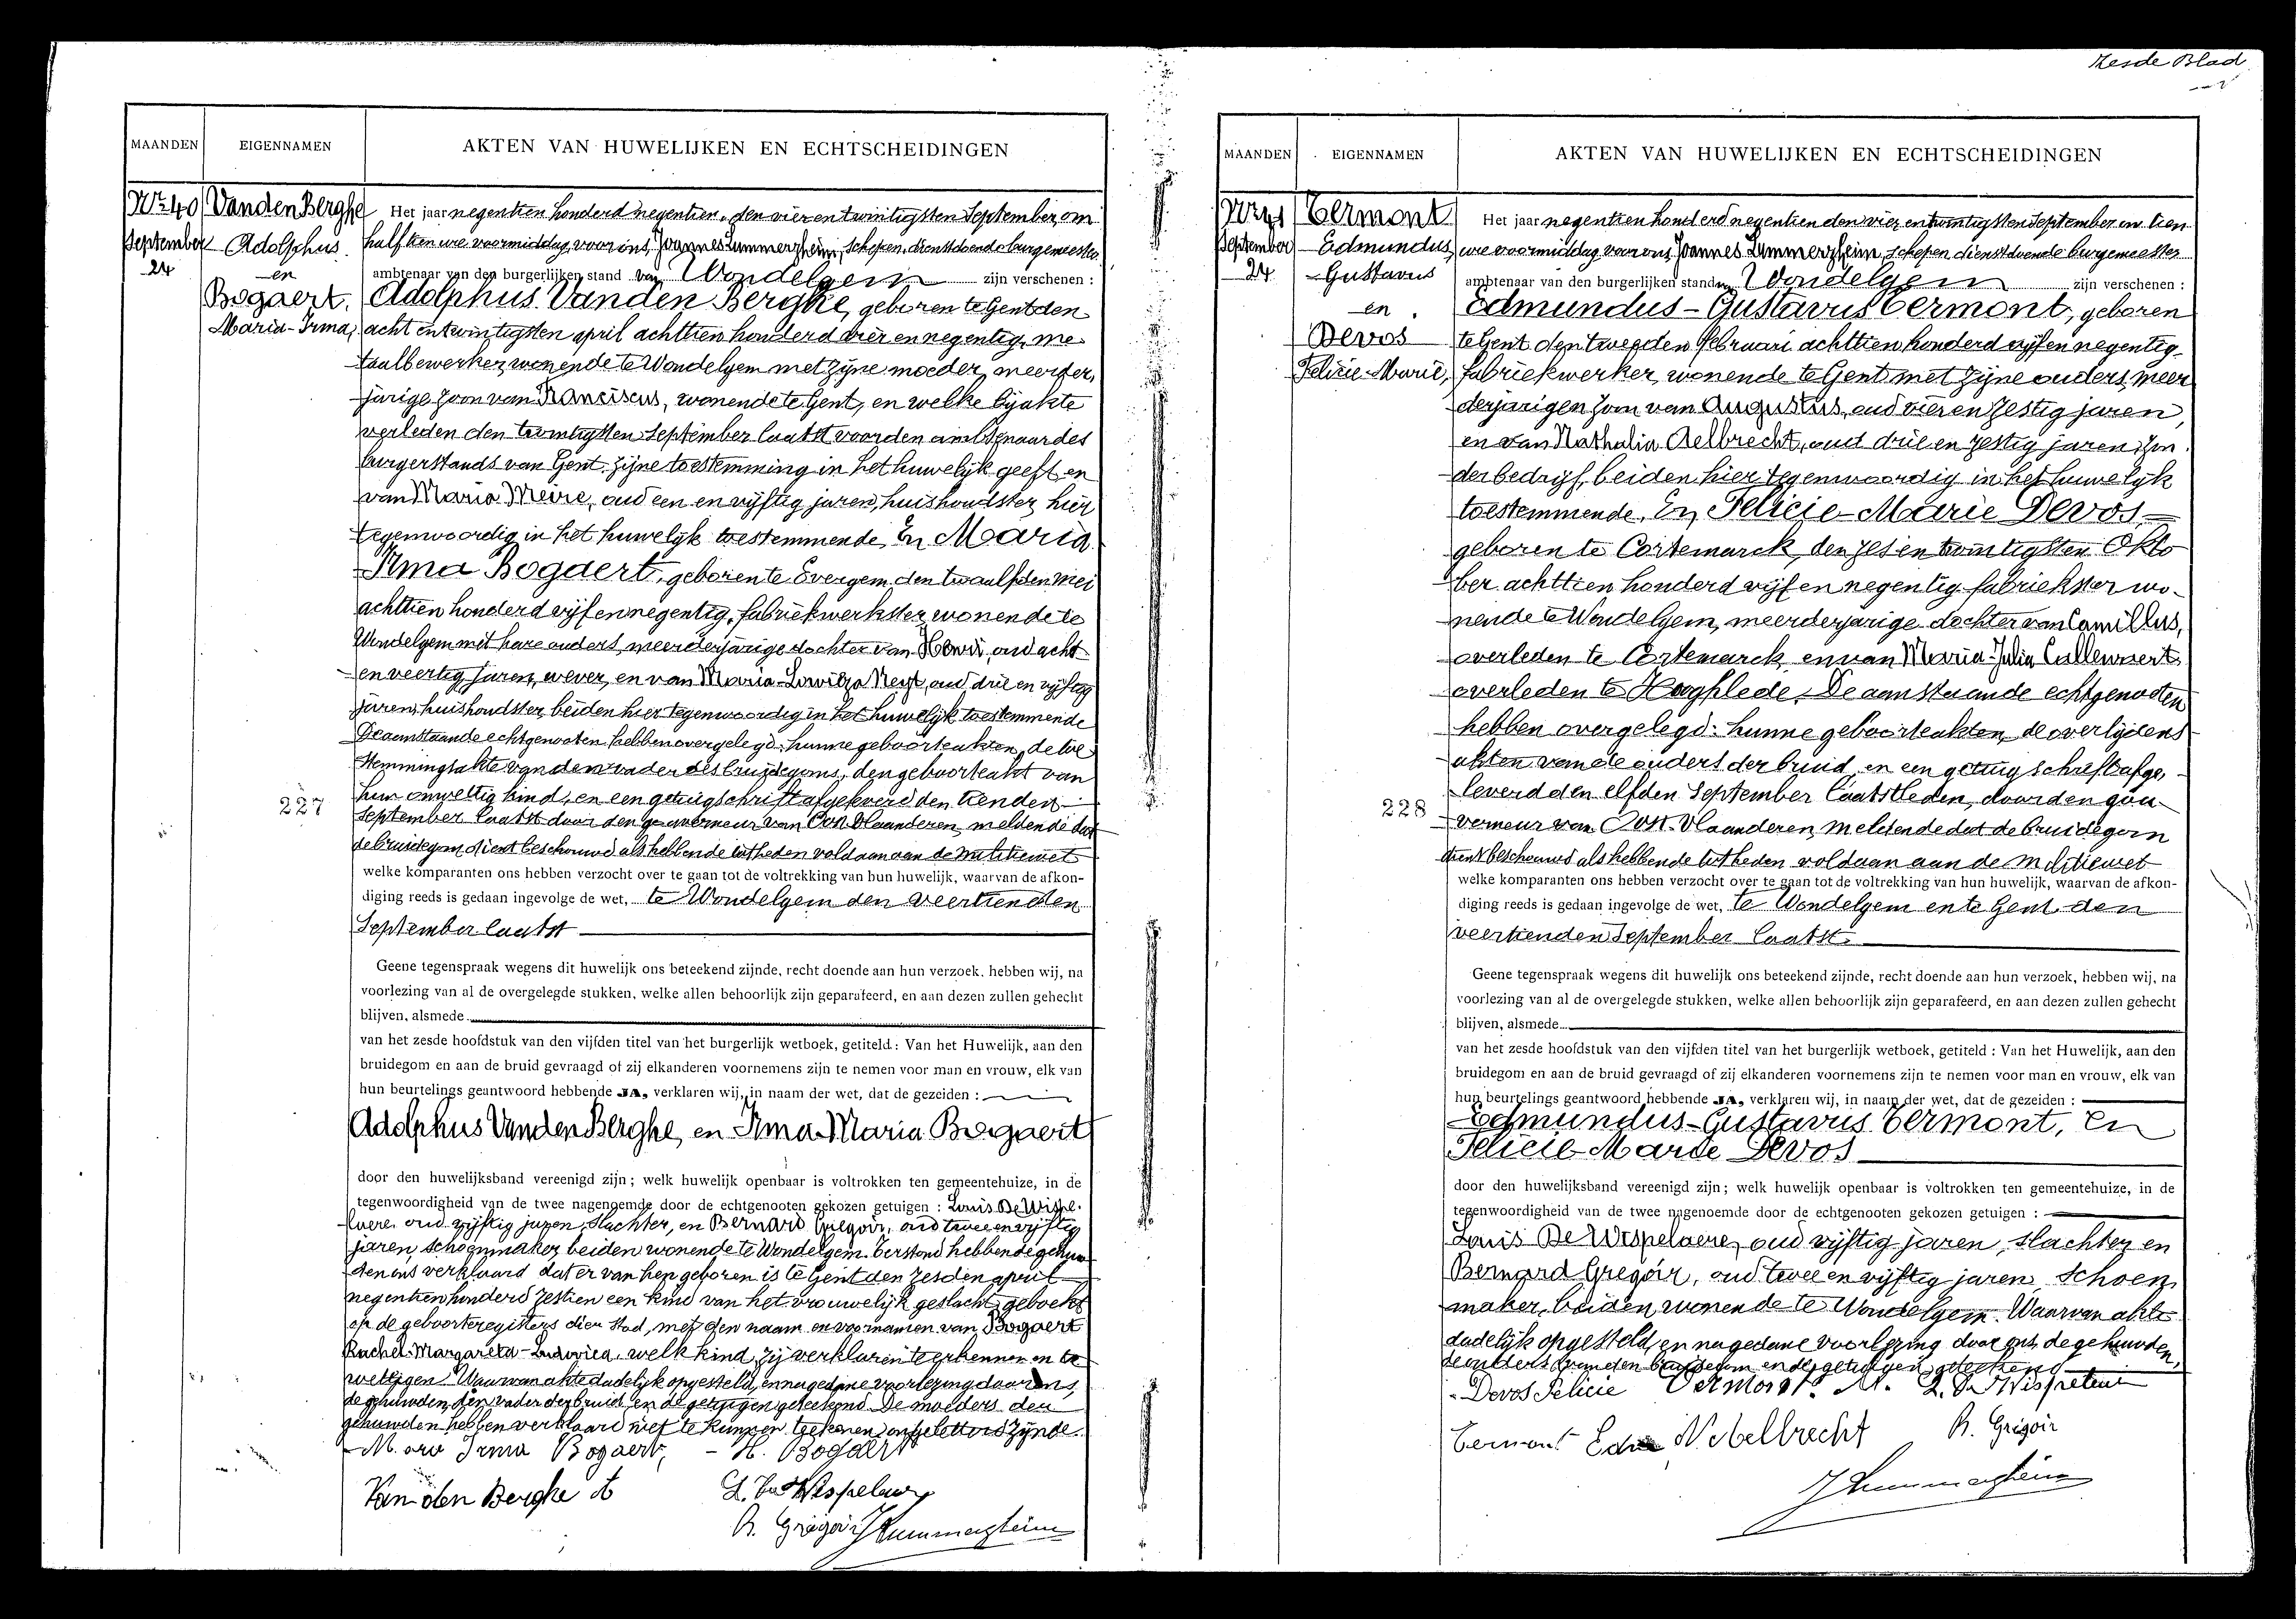 Zesde Blad
MAANDEN
EIGENNAMEN
AKTEN VAN HUWELIJKEN EN ECHTSCHEIDINGEN
No 40
September
24
Vanden Berghe
Adolphus
en
Bogaert,
Maria-Irma,
Het jaar negentien honderd negentien, den vier en twintigsten September, om
half tien ure voormiddag, voor ons, Joannes Lummerzheim, schepen, dienstdoende burgemeester
ambtenaar van den burgerlijken stand van Wondelgem zijn verschenen :
Adolphus Vanden Berghe, geboren te Gent den
acht en twintigsten april achttien honderd vier en negentig, me-
taalbewerker, wonende te Wondelgem met zijne moeder, meerder,
jarige zoon van Franciscus, wonende te Gent, en welke bij akte
verleden den twintigsten September laatst voor den ambtenaar des
burgerstands van Gent, zijne toestemming in het huwelijk geeft, en
van Maria Meire, oud een en vijftig jaren, huishoudster, hier
tegenwoordig in het huwelyk toestemmende, En Maria
Irma Bogaert, geboren te Evergem, den twaalfden Mei
achttien honderd vijf en negentig, fabriekwerkster, wonende te
Wondelgem met hare ouders, meerderjarige dochter van Henri, oud acht
en veertig jaren, wever, en van Maria-Lowiza Neyt, oud drie en vijftig
jaren, huishoudster, beiden hier tegenwoordig in het huwelijk toestemmende
De aanstaande echtgenooten hebben overgelegd: hunne geboorteakten, de toe-
stemmingsakte van den vader des bruidegoms, den geboorteakt van
hun onwettig kind, en een getuigschrift afgeleverd den tienden
227
September laatst door den gouverneur van Oost-Vlaanderen, meldende dat
de bruidegom dient beschouwd als hebbende tot heden voldaan aan de militiewet
welke komparanten ons hebben verzocht over te gaan tot de voltrekking van hun huwelijk, waarvan de afkon-
diging reeds is gedaan ingevolge de wet, te Wondelgem den veertienden
September laatst
Geene tegenspraak wegens dit huwelijk ons beteekend zijnde, recht doende aan hun verzoek, hebben wij, na
voorlezing van al de overgelegde stukken, welke allen behoorlijk zijn geparafeerd, en aan dezen zullen gehecht
blijven, alsmede
van het zesde hoofdstuk van den vijfden titel van het burgerlijk wetboek, getiteld : Van het Huwelijk, aan den
bruidegom en aan de bruid gevraagd of zij elkanderen voornemens zijn te nemen voor man en vrouw, elk van
hun beurtelings geantwoord hebbende JA, verklaren wij, in naam der wet, dat de gezeiden :
Adolphus Vanden Berghe, en Irma-Maria Bogaert
door den huwelijksband vereenigd zijn ; welk huwelijk openbaar is voltrokken ten gemeentehuize, in de
tegenwoordigheid van de twee nagenoemde door de echtgenooten gekozen getuigen : Louis De Wispe-
laere, oud vijftig jaren, slachter, en Bernard Gregoir, oud twee en vijftig
jaren, schoenmaker, beiden wonende te Wondelgem. Terstond hebben de gehuw-
den ons verklaard dat er van hen geboren is te Gent den zesden april
negentien honderd zestien een kind van het vrouwelijk geslacht, geboekt
op de geboorteregisters dier Stad, met den naam en voornamen van Bogaert
Rachel-Margareta-Ludovica, welk kind zij verklaren te erkennen en te
wettigen. Waarvan akte dadelijk opgesteld, en na gedane voorlezing door ons,
de gehuwden, den vader der bruid en de getuigen geteekend. De moeders der
gehuwden hebben verklaard niet te kunnen teekenen, ongeletterd zijnde.
Maria Irma Bogaert, - H. Bogaert
Van den Berghe A
L. De Wispelaere
B. Gregoir JLummerzheim
MAANDEN
EIGENNAMEN
AKTEN VAN HUWELIJKEN EN ECHTSCHEIDINGEN
September
24
Vermont
Edmundus,
Gustavus
en
Devos
Felicie-Marie,
Het jaar negentien honderd negentien den vier en twintigsten September en tien
ure voormiddag voor ons, Joannes Lummerzheim, schepen dienstdoende burgemeester
ambtenaar van den burgerlijken stand van Wondelgem zijn verschenen :
Edmundus-Gustavus Vermont, geboren
te Gent den tweeden februari achttien honderd vijf en negentig,
fabriekwerker, wonende te Gent met zijne ouders, meer
derjarigen zoon van Augustus, oud vier en zestig jaren,
en van Nathalia Aelbrecht, oud drie en zestig jaren, zon-
der bedrijf, beiden hier tegenwoordig in het huwelyk
toestemmende, En, Felicie-Marie Devos,
geboren te Cortemarck, den zes en twintigsten Okto
ber achttien honderd vijf en negentig, fabriekster, wo-
nende te Wondelgem, meerderjarige dochter van Camillus,
overleden te Cortemarck, en van Maria-Julia Callewaert,
overleden te Hooghlede. De aanstaande echtgenooten
hebben overgelegd: hunne geboorteakten, de overlijdens
akten van de ouders der bruid, en een getuigschrift afge,
leverd den elfden September laatstleden, door den gou-
228
verneur van Oost-Vlaanderen meldende dat de bruidegom
dient beschouwd als hebbende tot heden voldaan aan de Militiewet
welke komparanten ons hebben verzocht over te gaan tot de voltrekking van hun huwelijk, waarvan de afkon-
diging reeds is gedaan ingevolge de wet, te Wondelgem en te Gent den
veertienden September laatst.
Geene tegenspraak wegens dit huwelijk ons beteekend zijnde, recht doende aan hun verzoek, hebben wij, na
voorlezing van al de overgelegde stukken, welke allen behoorlijk zijn geparafeerd, en aan dezen zullen gehecht
blijven, alsmede
van het zesde hoofdstuk van den vijfden titel van het burgerlijk wetboek, getiteld : Van het Huwelijk, aan den
bruidegom en aan de bruid gevraagd of zij elkanderen voornemens zijn te nemen voor man en vrouw, elk van
hun beurtelings geantwoord hebbende JA, verklaren wij, in naam der wet, dat de gezeiden :
Edmundus-Gustavus Vermont, En
Felicie-Marie Devos
door den huwelijksband vereenigd zijn ; welk huwelijk openbaar is voltrokken ten gemeentehuize, in de
tegenwoordigheid van de twee nagenoemde door de echtgenooten gekozen getuigen :
Louis De Wispelaere, oud vijftig jaren, slachter, en
Bernard Gregoir, oud twee en vijftig jaren, schoen
maker, beiden wonende te Wondelgem. Waarvan akte
dadelijk opgesteld, en na gedane voorlezing door ons, de gehuwden,
de ouders van den bruidegom en de getuigen geteekend
Devos Felicie Vermont A. L. De Wispelaere
Vermont Edm N. Aelbrecht B. Gregoir
JLummerzheim